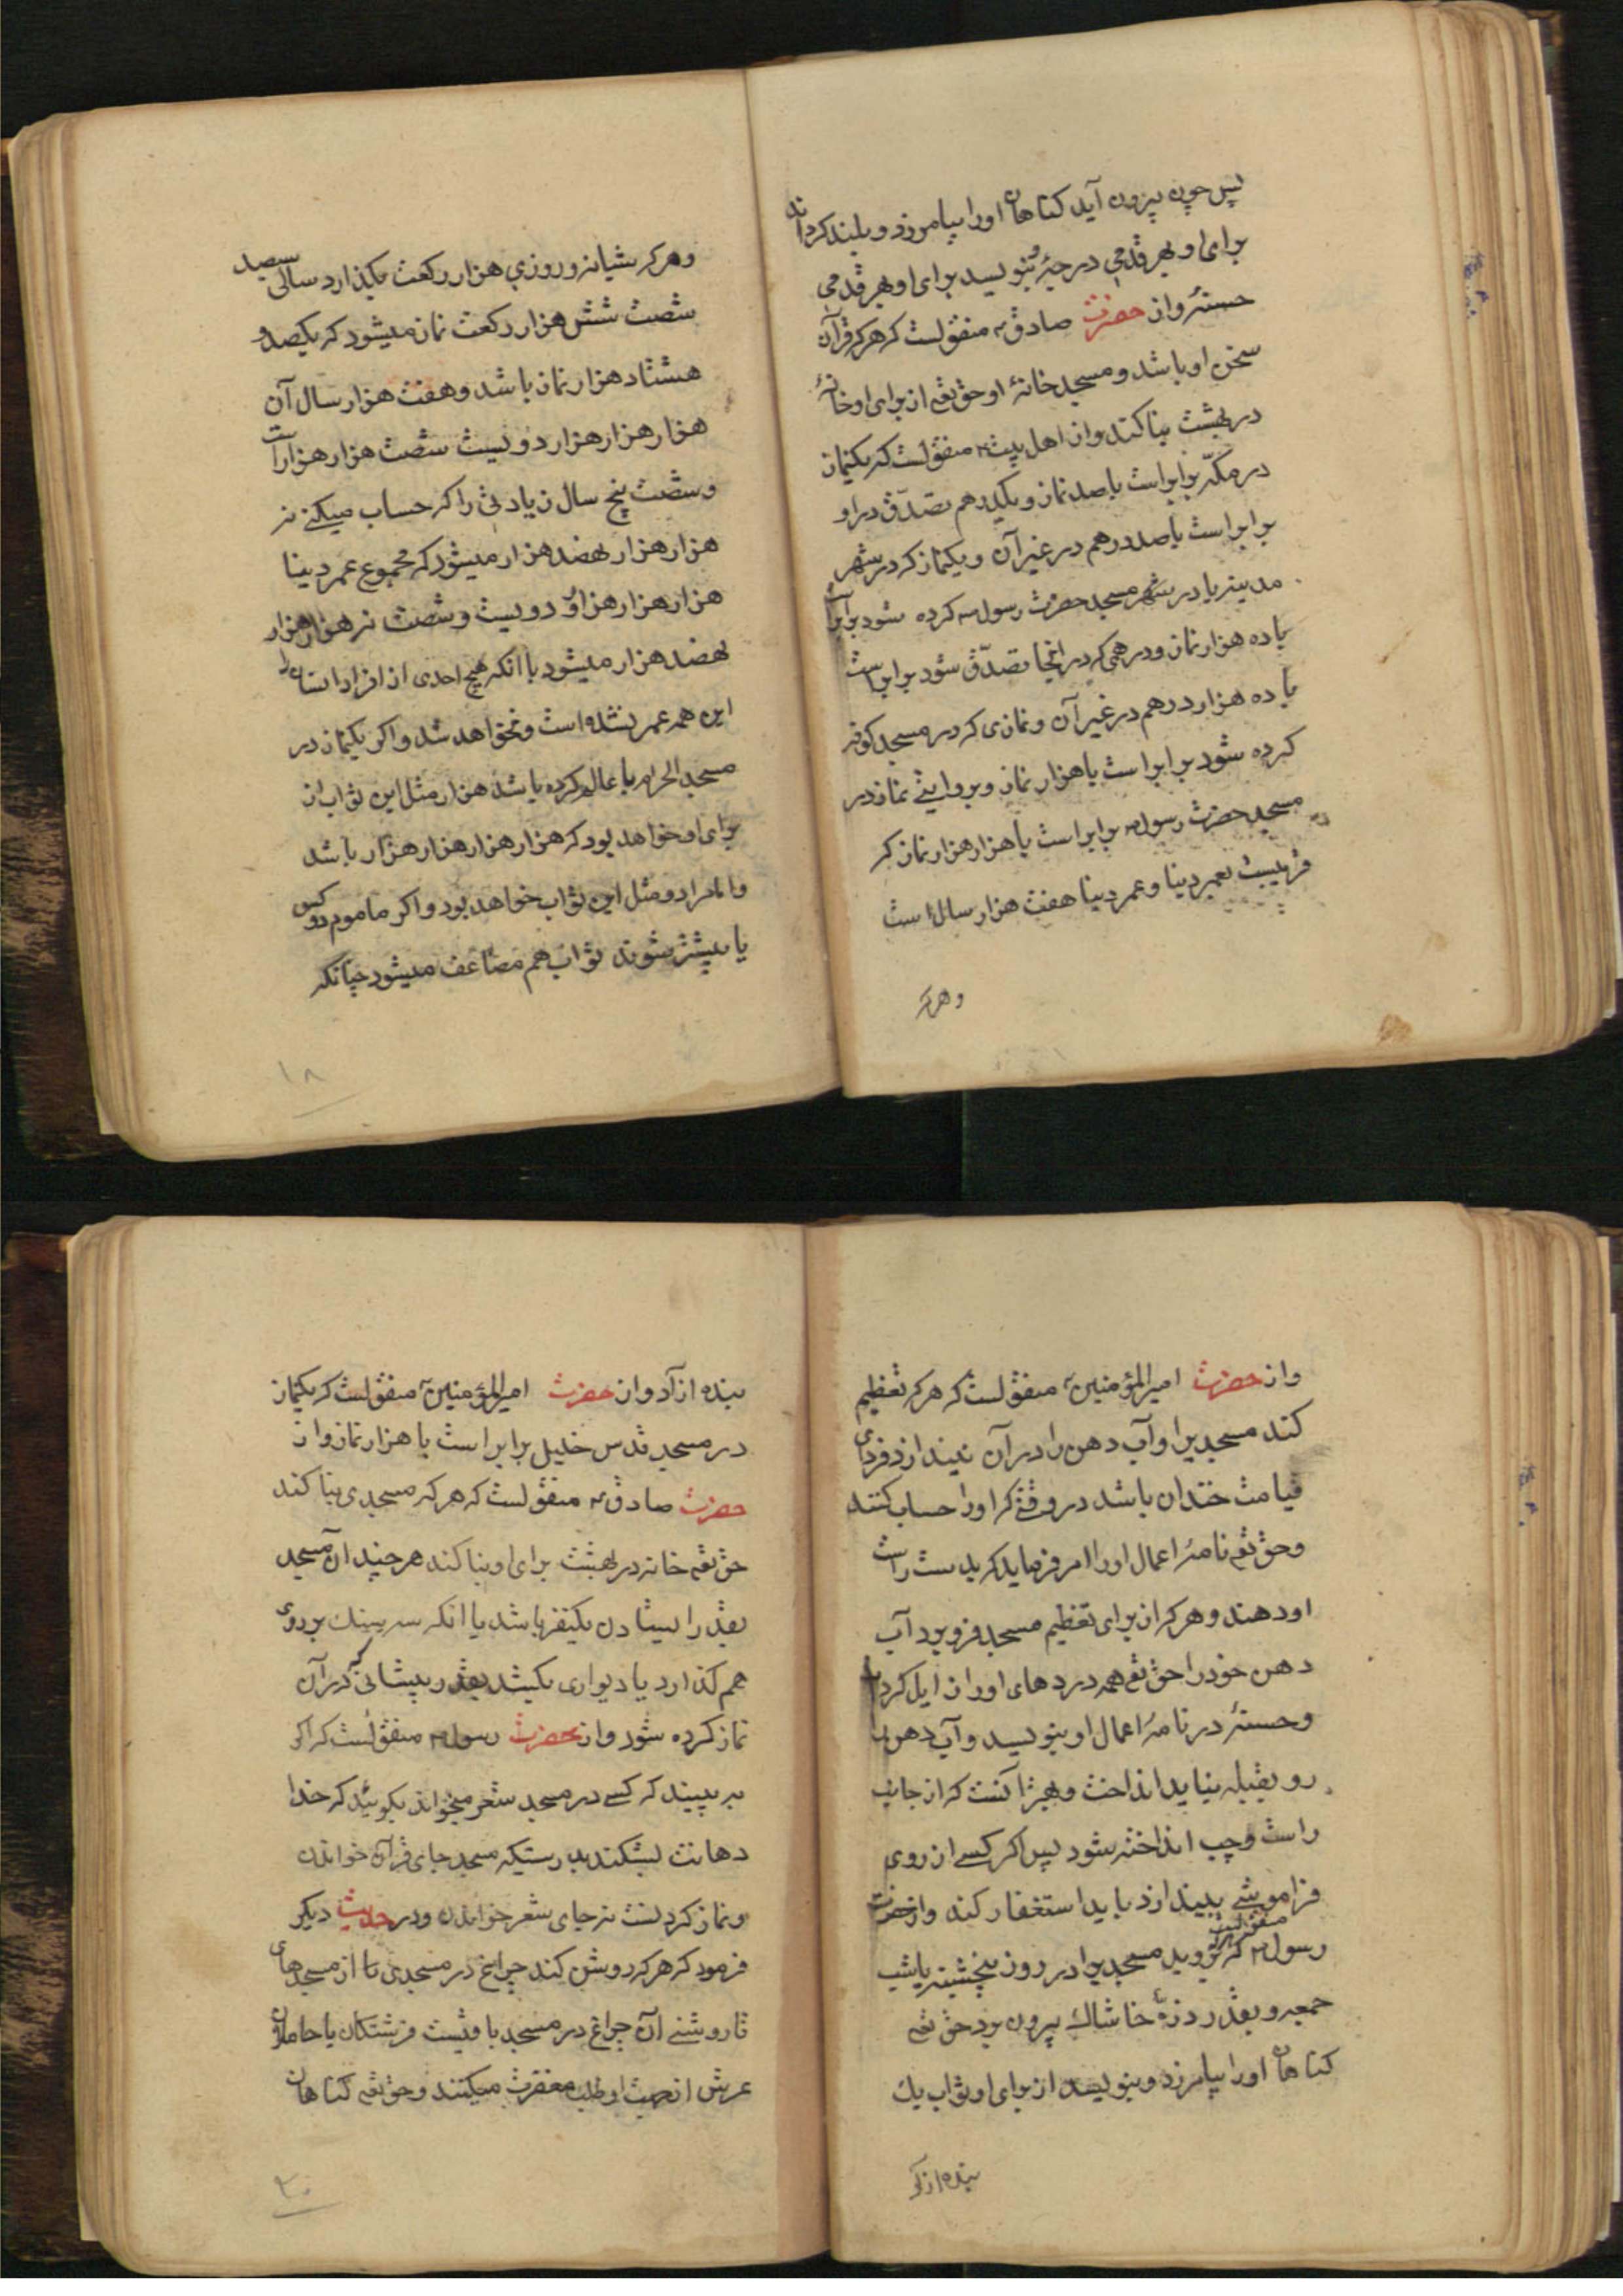 پس چون بیرون آید کناهان اورا بیامرزد و بلند کرداند
برای او بهر قدمی درجۀ و بنویسد برای او بهر قدمی
حسنۀ و از حضرت صادق ع منقولست که هر که قرآن
سخن او باشد و مسجد خانۀ او حق تعم از برای او خانۀ
در بهشت بنا کند و از اهل بیت ع منقولست که یکنماز
در مکّه برابر است با صد نماز و یکدرهم تصدّق در او
برابر است با صد درهم در غیر آن و یکنماز که در شهر
مدینه یا در شهر مسجد حضرت رسول ص کرده شود برابر است
با ده هزار نماز و درهمی که در انجا تصدّق شود برابر است
با ده هزار درهم در غیر آن و نمازی که در مسجد کوفه
کرده شود برابر است با هزار نماز و بروایتی نماز در
مسجد حضرت رسول ص برابر است با هزار هزار نماز که
قریبست بعمر دنیا و عمر دنیا هفت هزار سال است
وهرکه
وهرکه شبانه و روزی هزار رکعت بکذارد سالی سیصد
شصت شش هزار رکعت نماز میشود که یکصد و
هشتاد هزار نماز باشد و هفت هزار سال آن
هزار هزار هزار دویست شصت هزار هزار است
و شصت پنج سال زیادتی را که حساب میکنی نه
هزار هزار نهصد هزار میشود که مجموع عمر دنیا
هزار هزار هزار و دویست و شصت نه هزار هزار
نهصد هزار میشود با انکه هیچ احدی از افراد انسان را
این همه عمر نشده است و نخواهد شد و اکر یکنماز در
مسجد الحرام با عالم کرده باشد هزار مثل این ثواب از
برای او خواهد بود که هزار هزار هزار هزار باشد
و امام را دو مثل این ثواب خواهد بود و اکر ماموم دو کس
یا بیشتر شوند ثواب هم مضاعف میشود چنانکه
۱۸
و از حضرت امیرالمؤمنین ع منقولست که هر که تعظیم
کند مسجد را و آب دهن را در آن نیندازد فردای
قیامت خندان باشد در وقتی که اورا حساب کنند
و حق تعم نامۀ اعمال اورا امر فرماید که بدست راست
او دهند و هر که از برای تعظیم مسجد فرو برد آب
دهن خود را حق تعم همه دردهای اورا زایل کرداند
و حسنۀ در نامۀ اعمال او بنویسد و آب دهن را
رو بقبله نباید انداخت و بهتر آنست که از جانب
راست و چپ انداخته شود پس اکر کسی از روی
فراموشی بیندازد باید استغفار کند و از حضرت
رسول ص منقولست که هرکه بروبد مسجد را در روز پنجشنبه یا شب
جمعه و بقدر ذرۀ خاشاک بیرون برد حق تعم
کناهان اورا بیامرزد و بنویسد از برای او ثواب یک
بنده ازکر
بنده ازآد و از حضرت امیرالمؤمنین ع منقولست که یکنماز
در مسجد قدس خلیل برابر است با هزار نماز و از
حضرت صادق ع منقولست که هر که مسجدی بنا کند
حق تعم خانه در بهشت برای او بنا کند هر چند آن مسجد
بقدر ایستادن یکنفر باشد یا انکه سه سنک بر روی
هم کذارد یا دیواری بکشد بقدر پیشانی که در آن
نماز کرده شود و از حضرت رسول ص منقولست که اکر
به بینید که کسی در مسجد شعر میخواند بکوئید که خدا
دهانت بشکند بدرستیکه مسجد جای قرآن خواندن
و نماز کردنست نه جای شعر خواندن و در حدیث دیکر
فرمود که هر که روشن کند چراغ در مسجدی تا از مسجدهای
تا روشنی آن چراغ در مسجد باقیست فرشتکان یا حاملان
عرش از جهت او طلب مغفرت میکنند و حق تعم کناهان
۲۰